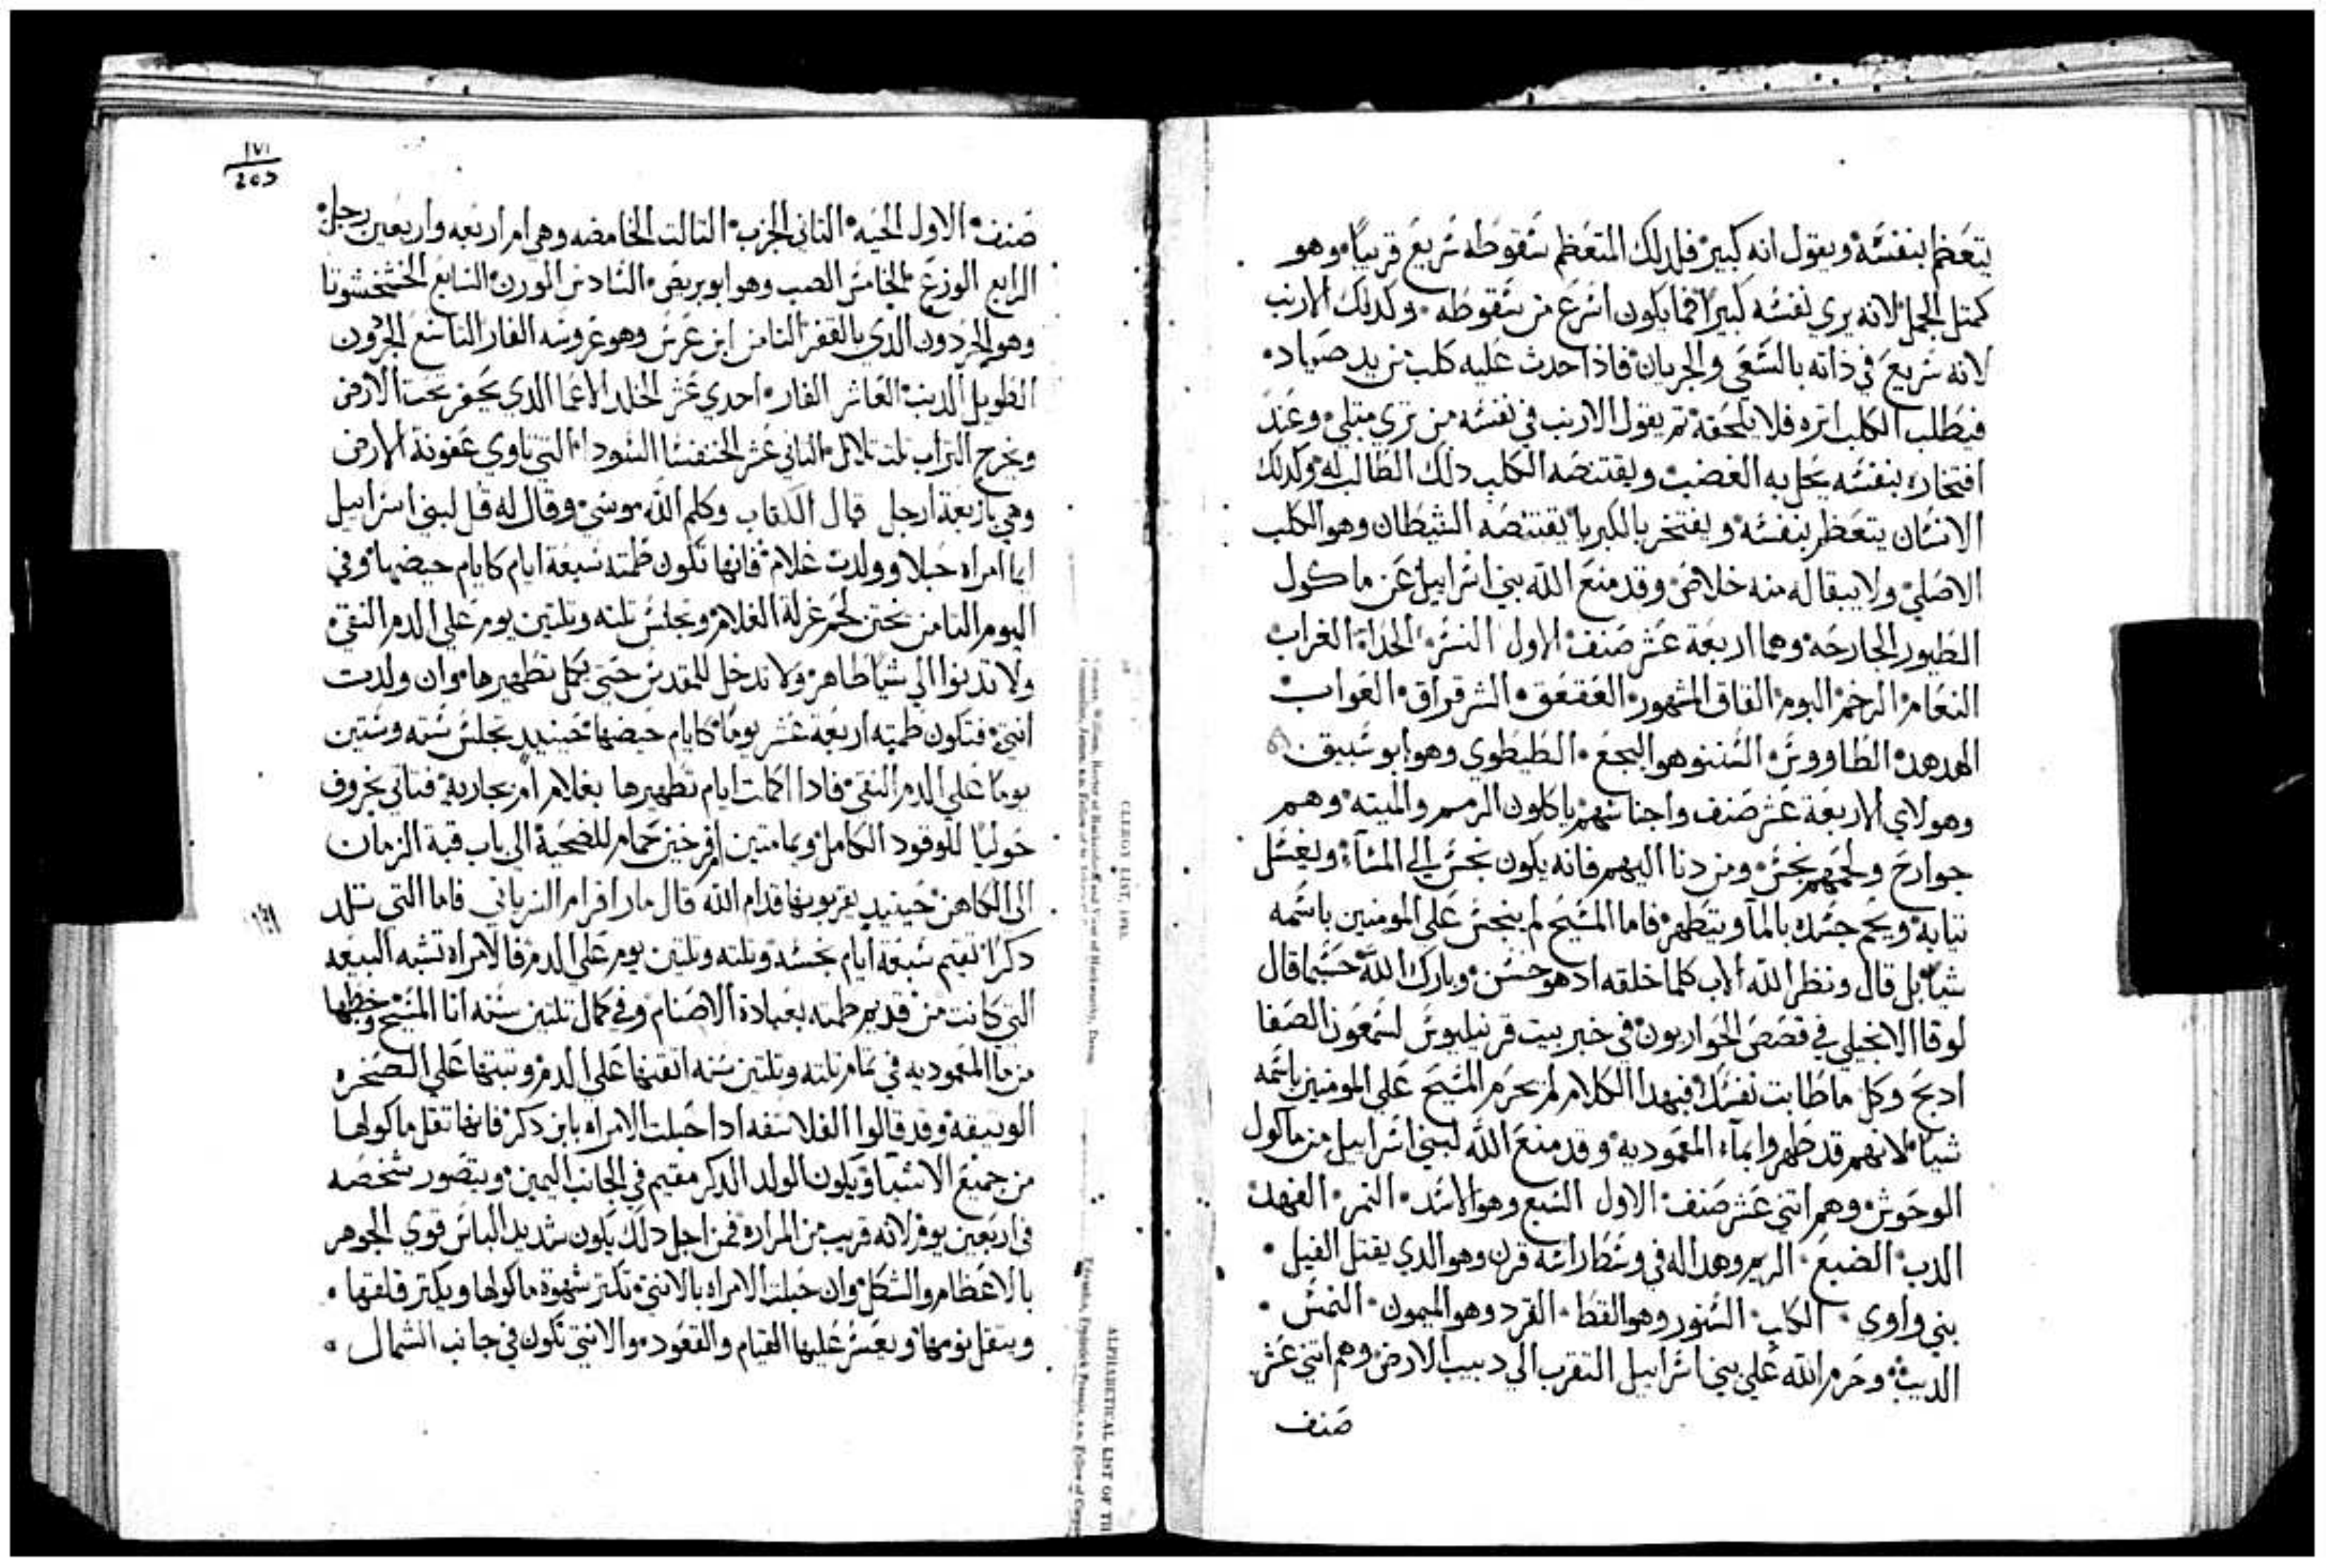 يتعظم بنفسه ويقول انه كبير فلدلك المتعظم سقوطه سريع قريبا وهو
كمتل الجمل لانه يري نفسه كبيرا فما يكون اسرع من سقوطه وكدلك الارنب
لانه سريع في ذاته بالسعي والجريان فاذا حدث عليه كلب صياد
فيطلب الكلب اتره فلا يلحقه تم يقول الارنب في نفسه من تري متلي وعند
افتخاره بنفسه يحل به الغضب ويقتنصه الكلب دلك الطالب له وكدلك
الانسان يتعظم بنفسه ويفتخر بالكبريا يقتنصه الشيطان وهو الكلب
الاصلي ولا يبقا له منه خلاص وقد منع الله بني اسراييل عن ماكول
الطيور الجارحه وهما اربعة عشر صنف الاول النسر الحداة الغراب
النعام الرخم البوم القاق المشهور العقعق الشرقراق الغواب
الهدهد الطاووس السننو هو البجع الطيطوي وهو ابو سبيق
وهولاي الاربعة عشر صنف واجناسهم ياكلون الرمم والميته وهم
جوارح ولحمهم نجس ومن دنا اليهم فانه يكون نجس الي المساء ويغسل
تيابه ويحم جسده بالما ويتطهر فاما المسيح لم ينجس علي المومنين باسمه
شيا بل قال ونظر الله الاب كلما خلقه ادهو حسن وبارك الله حسبما قال
لوقا الانجيلي في قصص الحواريون في خبر بيت قرنيليوس لسمعون الصفا
ادبح وكل ما طابت نفسك فبهدا الكلام لم يحرم المسيح علي المومنين باسمه
شيا لانهم قد طهروا بماء المعموديه وقد منع الله لبني اسراييل من ماكول
الوحوش وهم اتني عشر صنف الاول السبع وهو الاسد النمر الفهد
الدب الضبع الريم وهدا له في وسط راسه قرن وهو الدي يقتل الفيل
بني واوي الكلب السنور وهو القط القرد وهو الميمون النمس
الديب وحرم الله علي بني اسراييل التقرب الي دبيب الارض وهم اتني عشر
صنف
١٧١
صنف الاول الحيه التاني التالت الخامضه وهي ام اربعه واربعين رجل
الرابع الوزغ الخامس الضب وهو ابو بريص السادس الورن السابع
وهو الحردون الدي بالقفر التامن ابن عرس وهو عروسه الفار التاسع الجردون
الطويل الدنب العاشر الفار احدي عشر الخلد الاعما الدي يحفر تحت الارض
ويخرج التراب تلت تلال التاني عشر الخنفسا السودا التي تاوي عفونة الارض
وهي باربعة ارجل قال الكتاب وكلم الله موسي وقال له قل لبني اسراييل
ايما امراه حبلا وولدت غلام فانها تكون طمته سبعة ايام كايام حيضها وفي
اليوم التامن يختن لحم غرلة الغلام وتجلس تلته وتلتين يوم علي الدم النقي
ولا تدنوا الي شيا طاهر ولا تدخل للمقدس حتي يكمل تطهيرها وان ولدت
انتي فتكون طمته اربعة عشر يوما كايام حيضها حينيد تجلس سته وستين
يوما علي الدم النقي فادا اكملت ايام تطهيرها بغلام ام بجاريه فتاتي بخروف
حوليا للوقود الكامل ويمامتين ام فرخين حمام للضحية الي باب قبة الزمان
الي الكاهن حينيد يقربونها قدام الله قال مار افرام السرياني فاما التي تلد
دكرا تقيم سبعة ايام نجسه وتلته وتلتين يوم علي الدم فالامراه تشبه البيعه
التي كانت من قديم طمته بعبادة الاصنام وفي كمال تلتين سنه اتا المسيح وخطبها
من ما المعموديه في تمام تلته وتلتين سنه اتقنها علي الدم وتبتها علي الصخره
الوتيقه وقد قالوا الفلاسفه ادا حبلت الامراه بابن دكر فانها تقل ماكولها
من جميع الاشيا ويكون الولد الدكر مقيم في الجانب اليمين ويتصور شخصه
في اربعين يوم لانه قريب من المراره فمن اجل دلك يكون شديد الباس قوي الجوهر
بالاعظام والشكل وان حبلت الامراه بالانتي تكتر شهوة ماكولها ويكتر قلقها
ويتقل نومها ويعسر عليها القيام والقعود والانتي تكون في جانب الشمال
CLERGY LIST, 1913.
ALPHABETICAL LIST OF TH